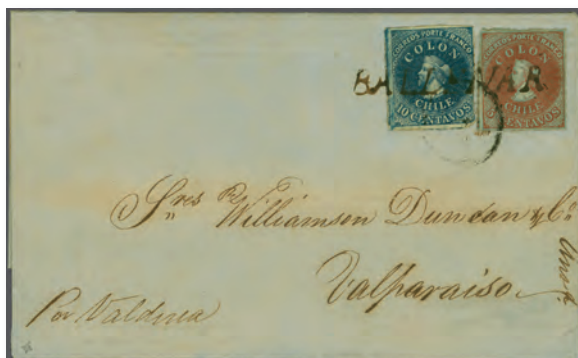 CORREOS PORTE FRANCO
COLON
CHILE
10 CENTAVOS
CORREOS PORTE FRANCO
COLON
CHILE
CENTAVOS
BALLENAR
Sres Williamson Duncan y Ca
Valparaiso
Por Valdivia